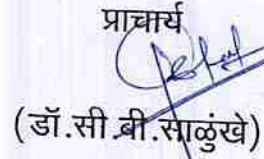 प्राचार्य
(डॉ.सी.बी.साळुंखे)